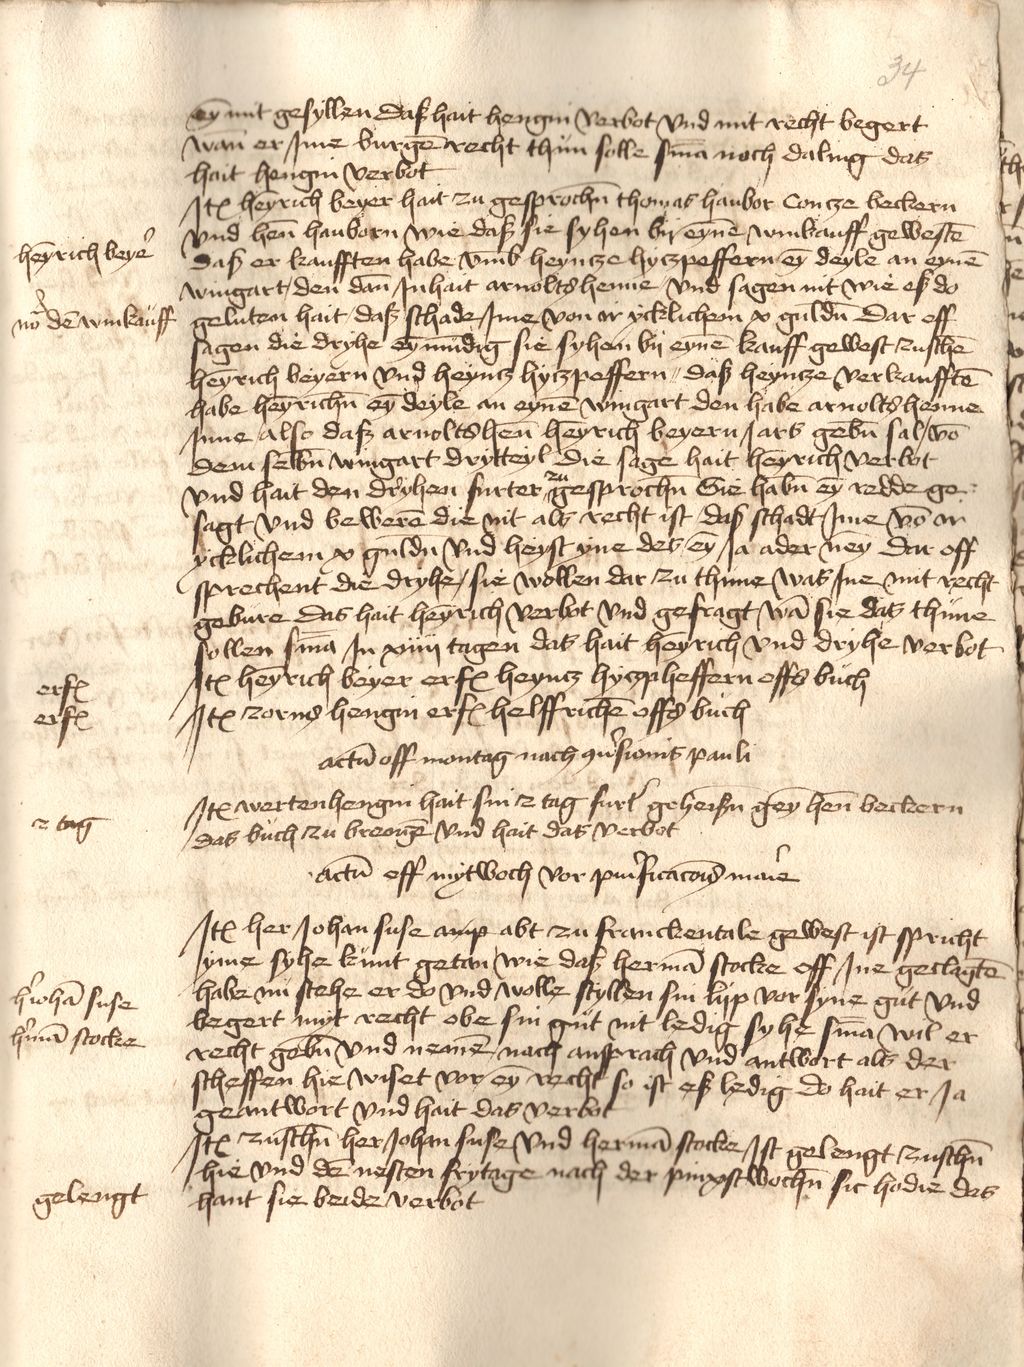 34
ey mit gesyllen daß hait hengin verbot vnd mit recht begert
wan er Jme burgen recht thun solle sma noch daling das
hait hengin verbot
Itz heyrich beyer hait zu gesprochn thomas haubor Contze beckern
heyrich beyer
vnd hen hauborn wie daß sie syhen bij eyne winkauff geweste
daß er kaufften habe vmb heyncze hyczpeffern ey deyle an eyne
wingart den dan Jnhait arnolts henne vnd sagen nit wie eß do
vor de winkauff
geluten hait daß schade Jme von yr ycklichem x guldn Dar off
sagen die dryhe eymudig sie syhen bij eyne kauff gewest zuschen
heyrich beyern vnd heyncz hyczpeffern daß heyncze verkauffte
habe heyrichn ey deyle an eyne wingart den habe arnolts henne
Jnne also daß arnolts hen heyrich beyern Jars gebn sal vo
dem selbn wingart drytteyl Die sage hait heyrich verbot
vnd hait den dryhen furter zu gesprochn Sie habn ey redde ge
sagt vnd bewere die nit als recht ist daß schadt Jme vo yr
ycklichem x guldn vnd heyst yne des ey Ja ader ney Dar off
sprechent die dryhe sie wollen dar zu thune was Jne mit recht
gebure das hait heyrich verbot vnd gefragt wa sie das thune
sollen sma Jn xiiij tagen das hait heyrich vnd dryhe verbot
erfz
Itz heyrich beyer erfz heyncz hyczpheffern offs buch
erfz
Itz zorns hengin erfz helffriche offs buch
actu off montag nach 9uersionis pauli
Itz werten hengin hait sin 2 tag furter geheisn gey hen beckern
2 tag
das buch zu brenge vnd hait das verbot
actu off mytwoch vor purificacois marie
Itz her Johan suse abt zu franckentale gewest ist spricht
yme syhe kunt getan wie daß herma stocke off Jne geclagte
h Joha suse
habe nu stehe er do vnd wolle styllen sin lijp vor syne gut vnd
begert myt recht obe sin gut nit ledig syhe sma wil er
herma stocke
recht gebn vnd neme nach ansprach vnd antwort als der
scheffen hie wiset vor ey recht so ist eß ledig do hait er Ja
geantwort vnd hait das verbot
Itz zuschn her Johan suse vnd herma stocke Ist gelengt zuschn
hie vnd de nesten frytage nach der pinxstwochn sic hodie das
gelengt
hant sie beide verbot